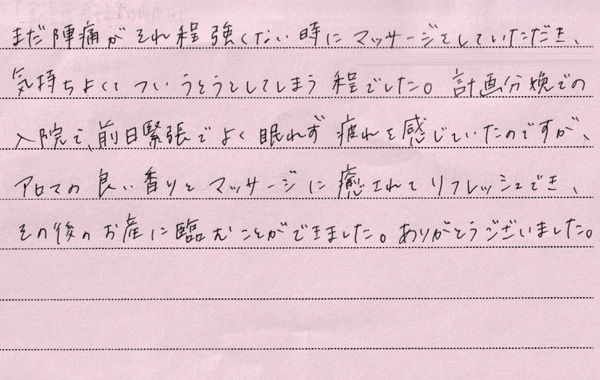 まだ陣痛がそれ程強くない時にマッサージをしていただき、
気持ちよくてついうとうとしてしまう程でした。計画分娩での
入院で、前日緊張でよく眠れず疲れを感じていたのですが、
アロマの良い香りとマッサージに癒されてリフレッシュでき、
その後のお産に臨むことができました。ありがとうございました。